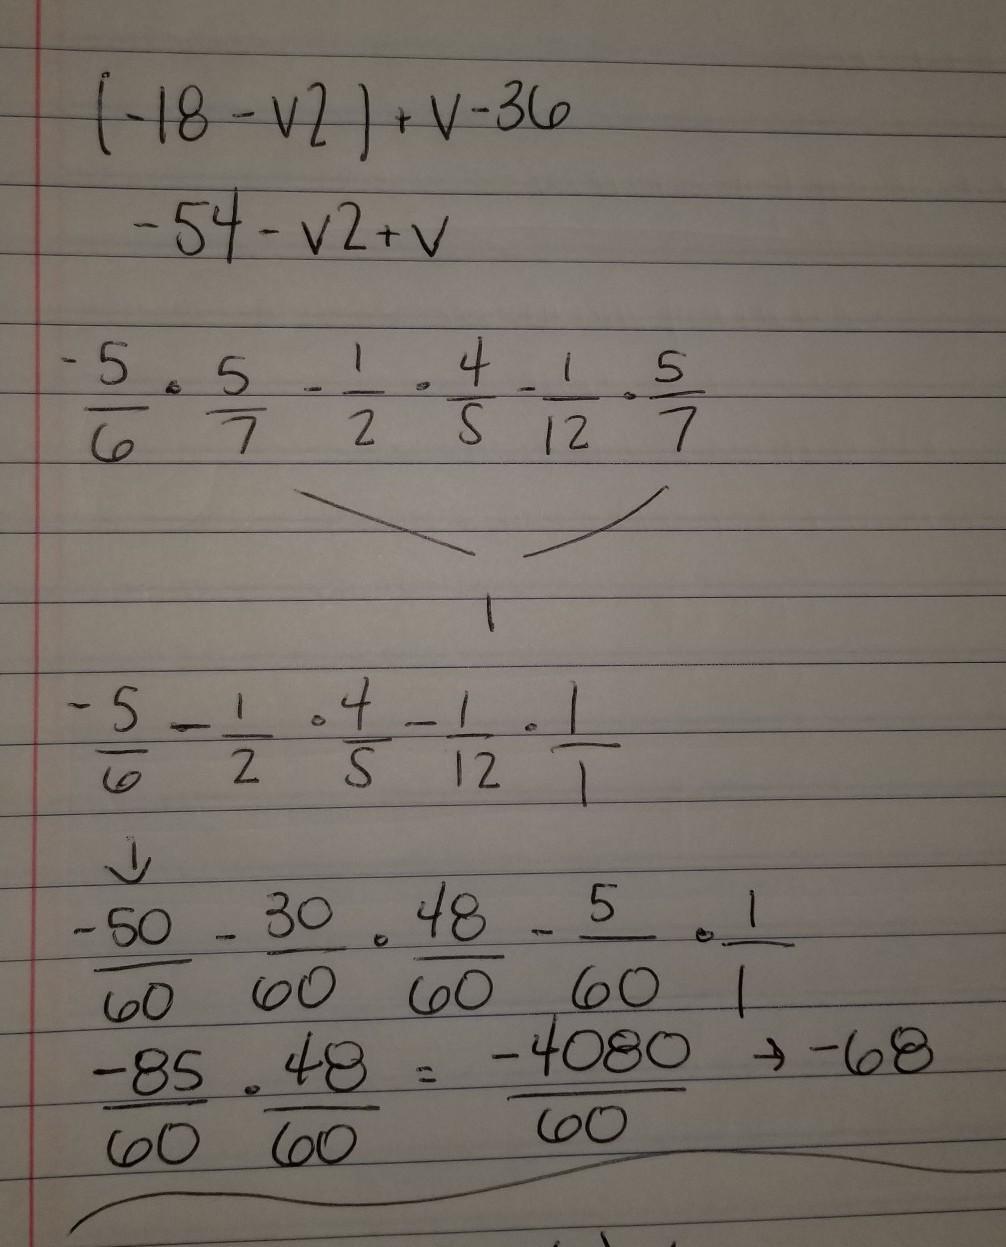 (-18 - v2) + v - 36
-54 - v2 + v
-5/6 · 5/7 - 1/2 · 4/5 - 1/12 · 5/7
1
-5/6 - 1/2 · 4/5 - 1/12 · 1/1
↓
-50/60 - 30/60 · 48/60 - 5/60 · 1/1
-85/60 · 48/60 = -4080/60 → -68